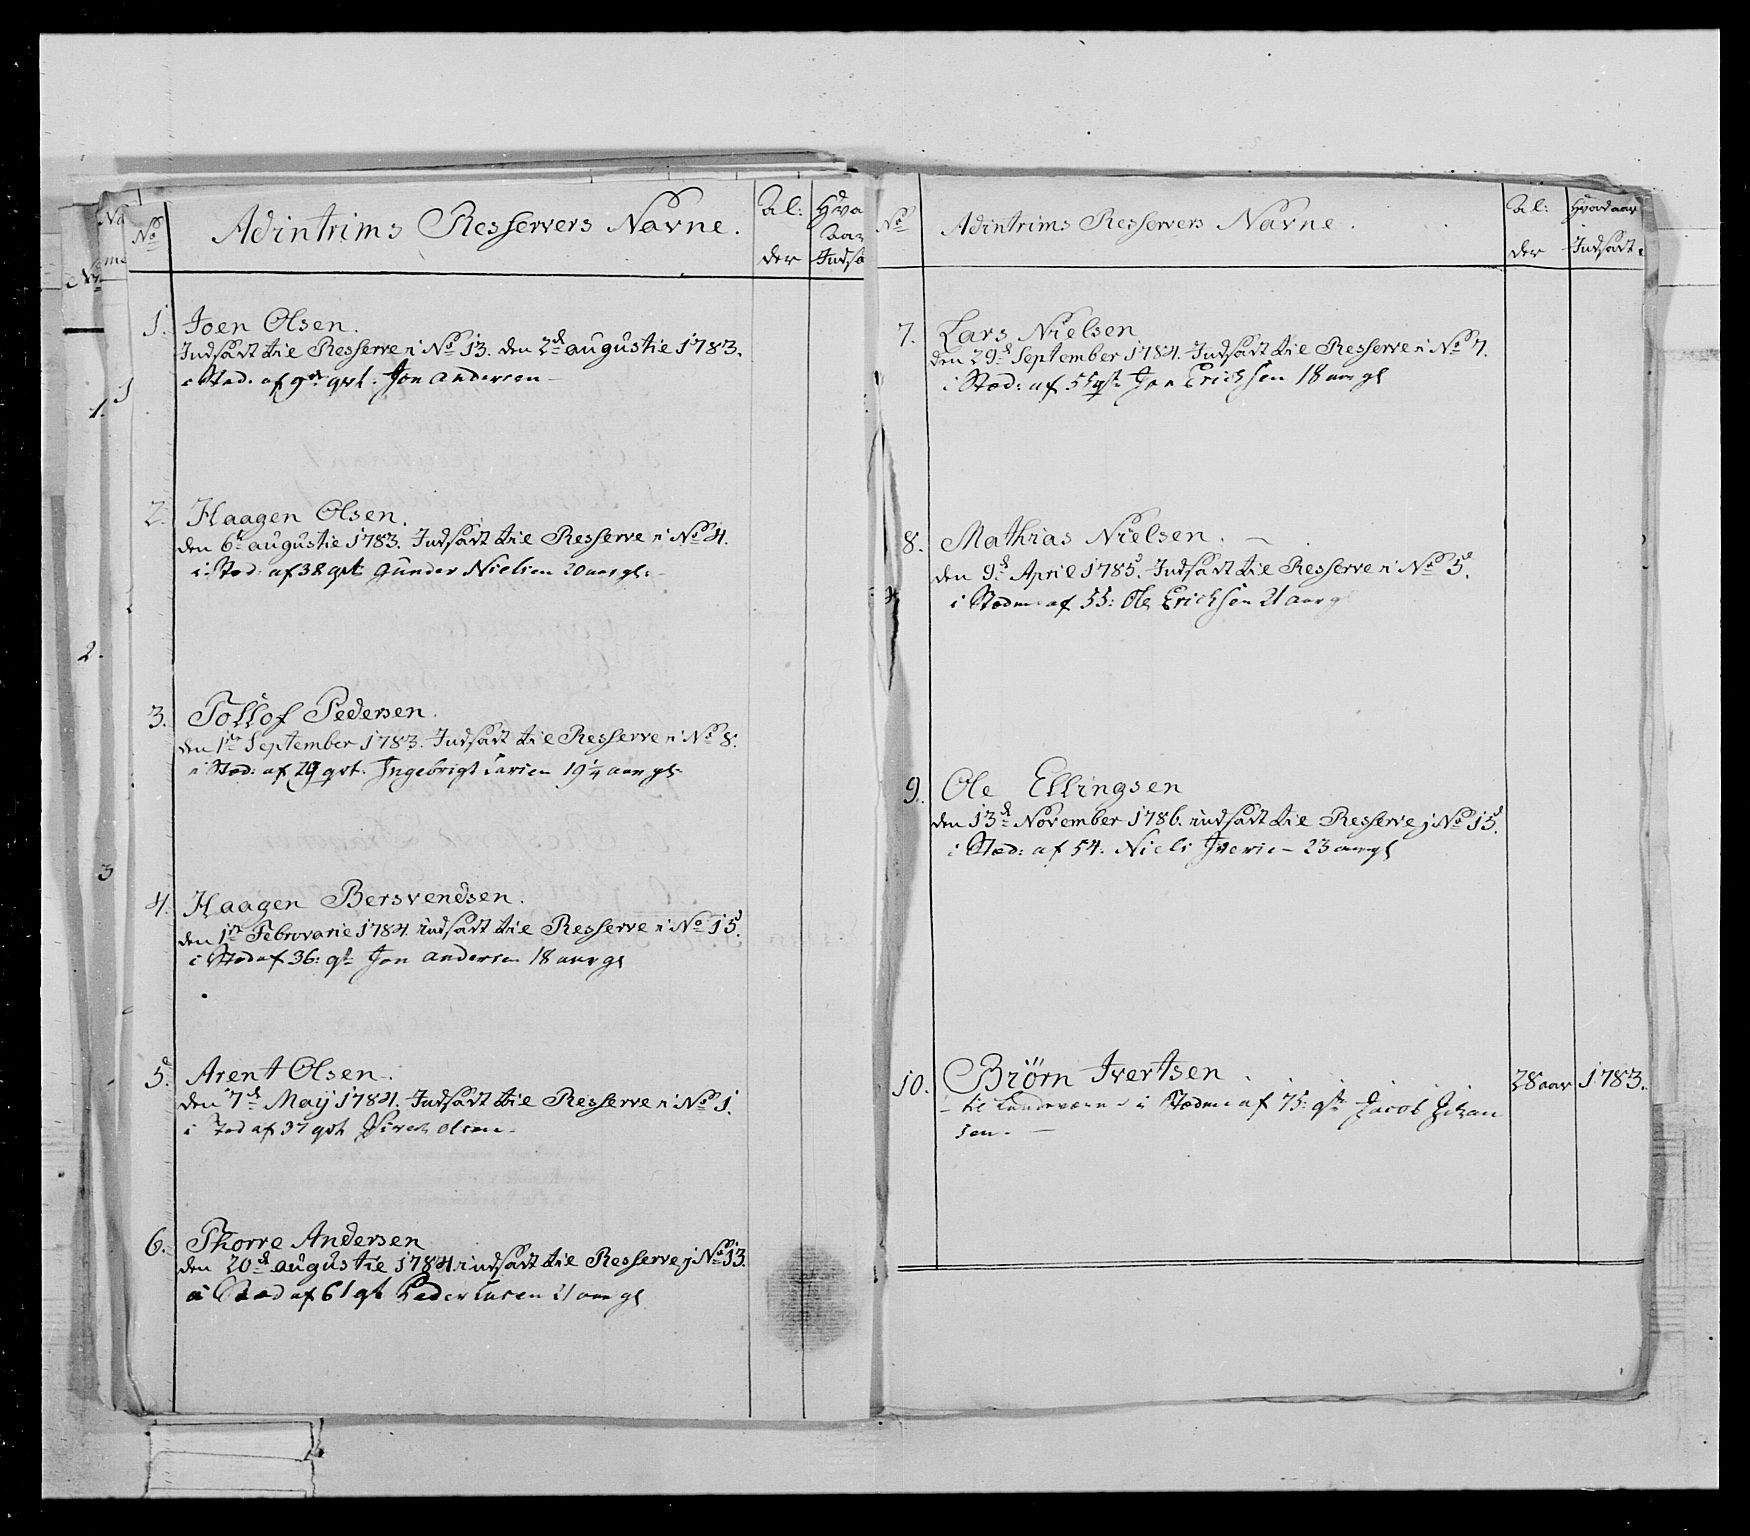 No
Adintrims Resservers Navne.
Al:
der
Hva
Aar
Indsa
1. Joen Olsen.
Indsadt til Resserve i No 13. den 2d augustie 1783.
i Sted. af 9de qvt. Jon Andersen
2. Haagen Olsen.
den 6te augustie 1783. Indsadt til Resserve i No 4.
i Sted. af 38 qvt Gunder Nielsen 20 aar gl:
3. Tollof Pedersen.
den 1ste September 1783. Indsadt til Resserve i No 8.
i Sted: af 29 qvt. Ingebrigt Larsen 19 1/4 aar gl:
4. Haagen Bersvendsen.
den 1ste Febrovarie 1784 indsadt til Resserve i No 15.
i Sted af 36: qt Jon Andersen 18 aar gl
5. Arent Olsen.
den 7de Maij 1784. Indsadt til Resserve i No 1.
i Sted af 37 qvt Olsen.
6. Thorre Andersen
den 20d augustie 1784. indsadt til Resserve j No 13.
i Sted af 61 qt Peder Larsen 21 aar gl
No
Adintrims Resservers Navne.
Al:
der
Hvad aar
Indsadt.
7. Lars Nielsen
den 29d September 1784. Indsadt til Resserve i No 7.
i Sted: af 55 qt Jon Erichsen 18 aar gl
8. Mathias Nielsen.
den 9d April 1785. Indsadt til Resserve i No 5.
i Steden af 55: Ole Erichsen 21 aar g
9. Ole Ellingsen
den 13d November 1786. indsadt til Resserve j No 15.
i Sted: af 54. Niels Iversen 23 aar gl
10. Briörn Ivertsen. 28 aar 1783.
til Landeværn i Steden af 75: qt Jacob Johan
sen.